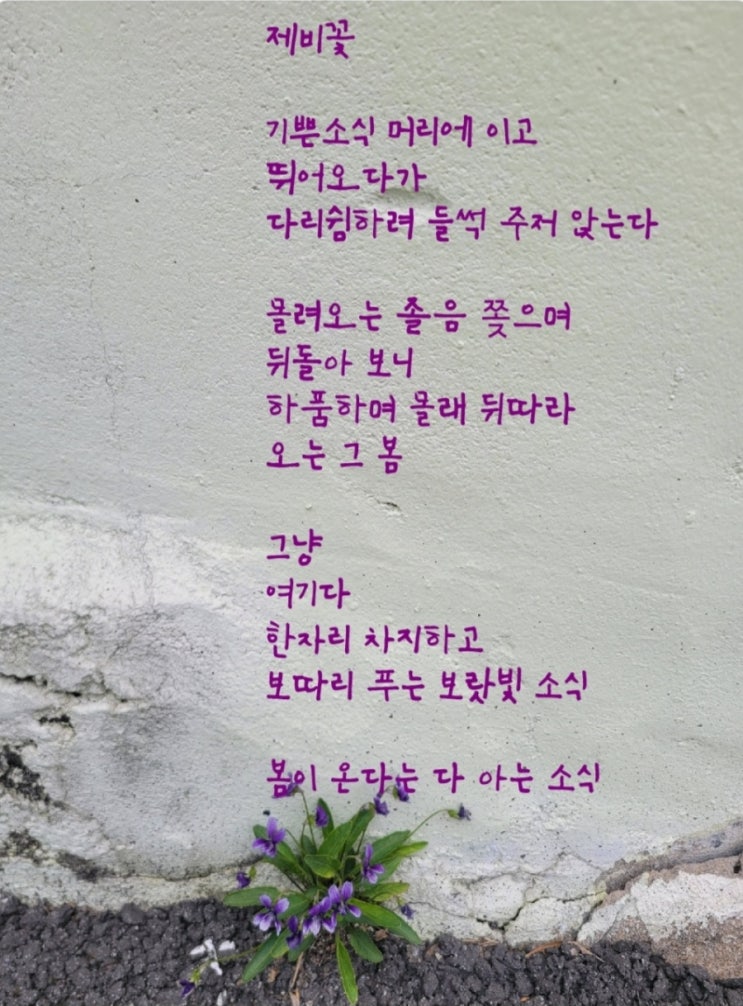 제비꽃
기쁜소식 머리에 이고
뛰어오다가
다리쉼하려 들썩 주저 앉는다
몰려오는 졸음 쫒으며
뒤돌아 보니
하품하며 몰래 뒤따라
오는 그 봄
그냥
여기다
한자리 차지하고
보따리 푸는 보랏빛 소식
봄이 온다는 다 아는 소식